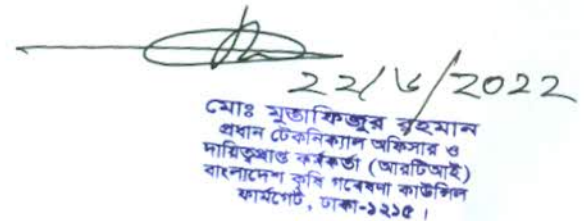 22/৬/2022
মোঃ মুস্তাফিজুর রহমান
প্রধান টেকনিক্যাল অফিসার ও
দায়িত্বপ্রাপ্ত কর্মকর্তা (আরটিআই)
বাংলাদেশ কৃষি গবেষণা কাউন্সিল
ফার্মগেট, ঢাকা-১২১৫।